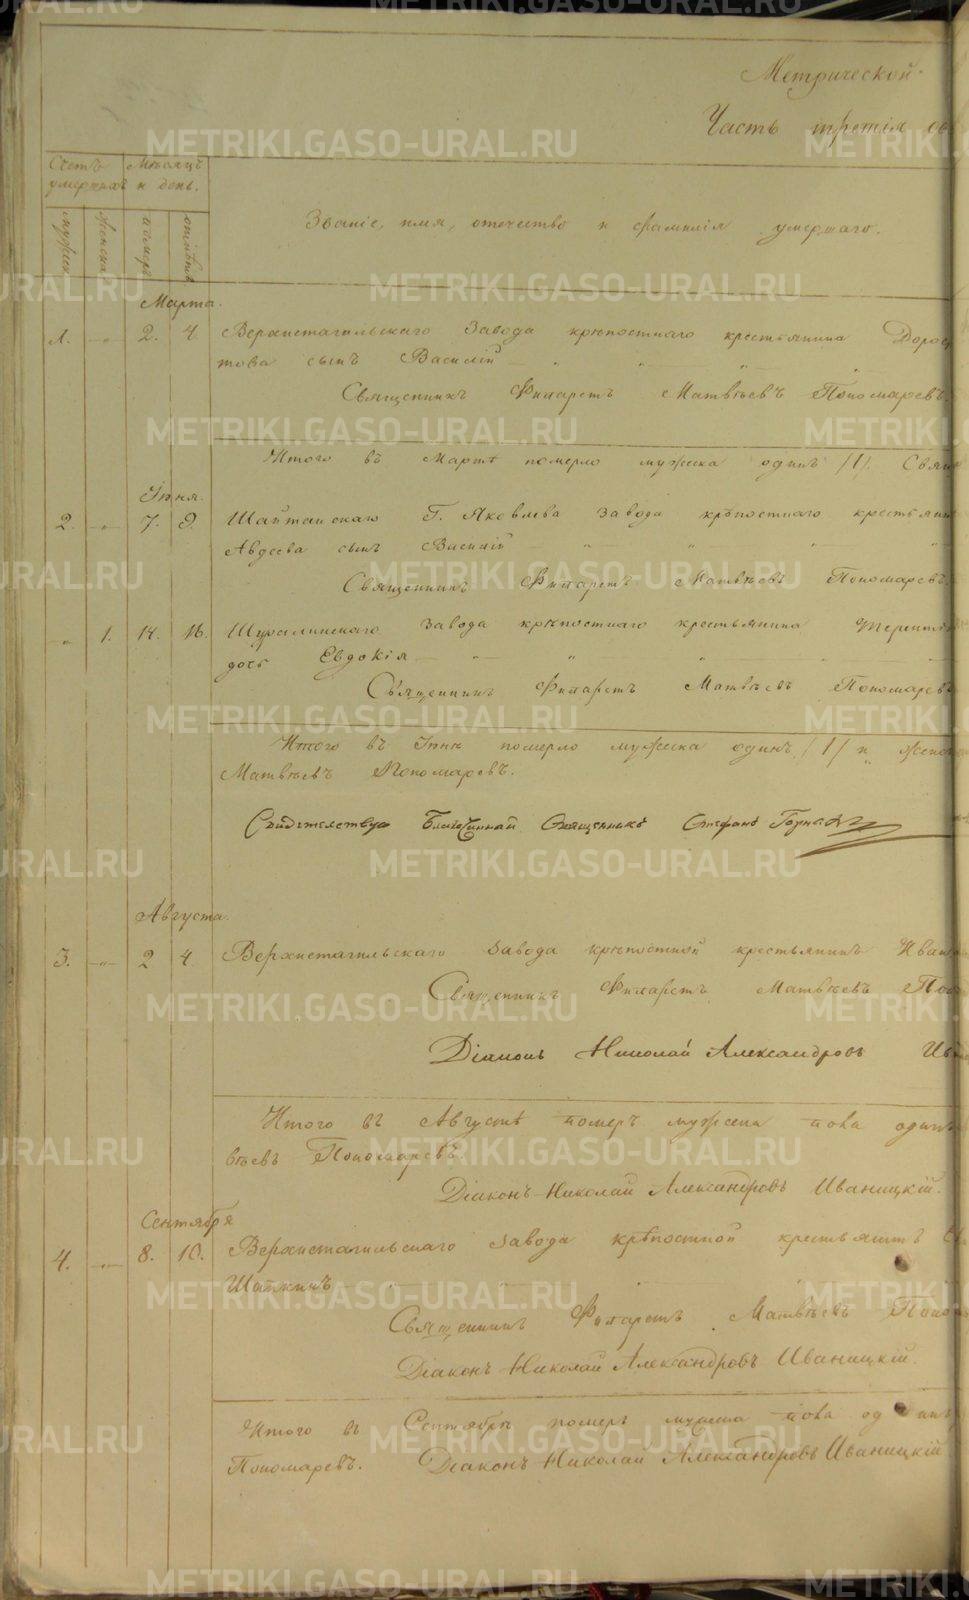 Метрической
Часть третія об
Счетъ умершихъ
Мѣсяцъ и день.
мужеск
женска
померъ
отпѣтъ
Званіе, имя, отечество и фамилія умершаго.
Марта.
1. 2. 4. Верхнетагильскаго Завода крѣпостнаго крестьянина Доро
това сынъ Василій
Священникъ Филаретъ Матвѣевъ Пономаревъ.
Итого въ Мартѣ померло мужеска одинъ /1/. Свящ
Іюня.
2. 7. 9. Шайтанскаго Г. Яковлева завода крѣпостнаго крестьян
Авдеева сынъ Василій
Священникъ Филаретъ Матвѣевъ Пономаревъ.
1. 14. 16. Шуралинскаго завода крѣпостнаго крестьянина Терентія
дочь Евдокія
Священникъ Филаретъ Матвѣевъ Пономаревъ
Итого въ Іюнѣ померло мужеска одинъ /1/ и женск
Матвѣевъ Пономаревъ.
Свидѣтельствую Благочинный Священникъ Стефанъ
Августа.
3. 2 4. Верхнетагильскаго завода крѣпостной крестьянинъ Иван
Священникъ Филаретъ Матвѣевъ По
Діаконъ Николай Александровъ Ив
Итого въ Августѣ померъ мужеска пола одинъ
вѣевъ Пономаревъ.
Діаконъ Николай Александровъ Иваницкій.
Сентября
4. 8. 10. Верхнетагильскаго завода крѣпостной крестьянинъ
Шаткинъ
Священникъ Филаретъ Матвѣевъ Поно
Діаконъ Николай Александровъ Иваницкій.
Итого въ Сентябрѣ померъ мужеска пола одинъ
Пономаревъ. Діаконъ Николай Александровъ Иваницкій
METRIKI.GASO-URAL.RU